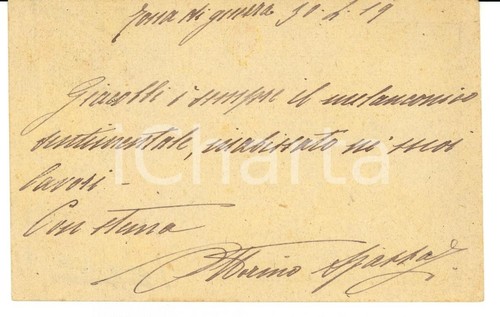 Zona di guerra 30.1.19
Giacobbi è sempre il melanconico
sentimentale, inabissato ne' suoi
lavori -
Con stima
Ottorino
iCharta